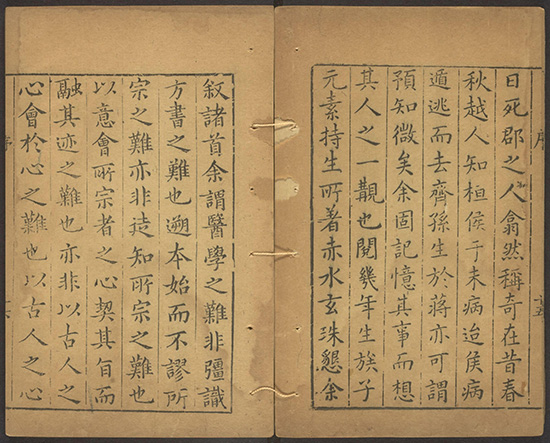 日死郡之人翕然稱奇在昔春
秋越人知桓侯于未病迨侯病
遁逃而去齊孫生於蔣亦可謂
預知微矣余固記憶其事而想
其人之一覯也閱幾年生族子
元素持生所著赤水玄珠懇余
敘諸首余謂醫學之難非彊識
方書之難也遡本始而不謬所
宗之難亦非遠知所宗之難也
以意會所宗者之心契其旨而
融其迹之難也亦非以古人之
心會於心之難也以古人之心